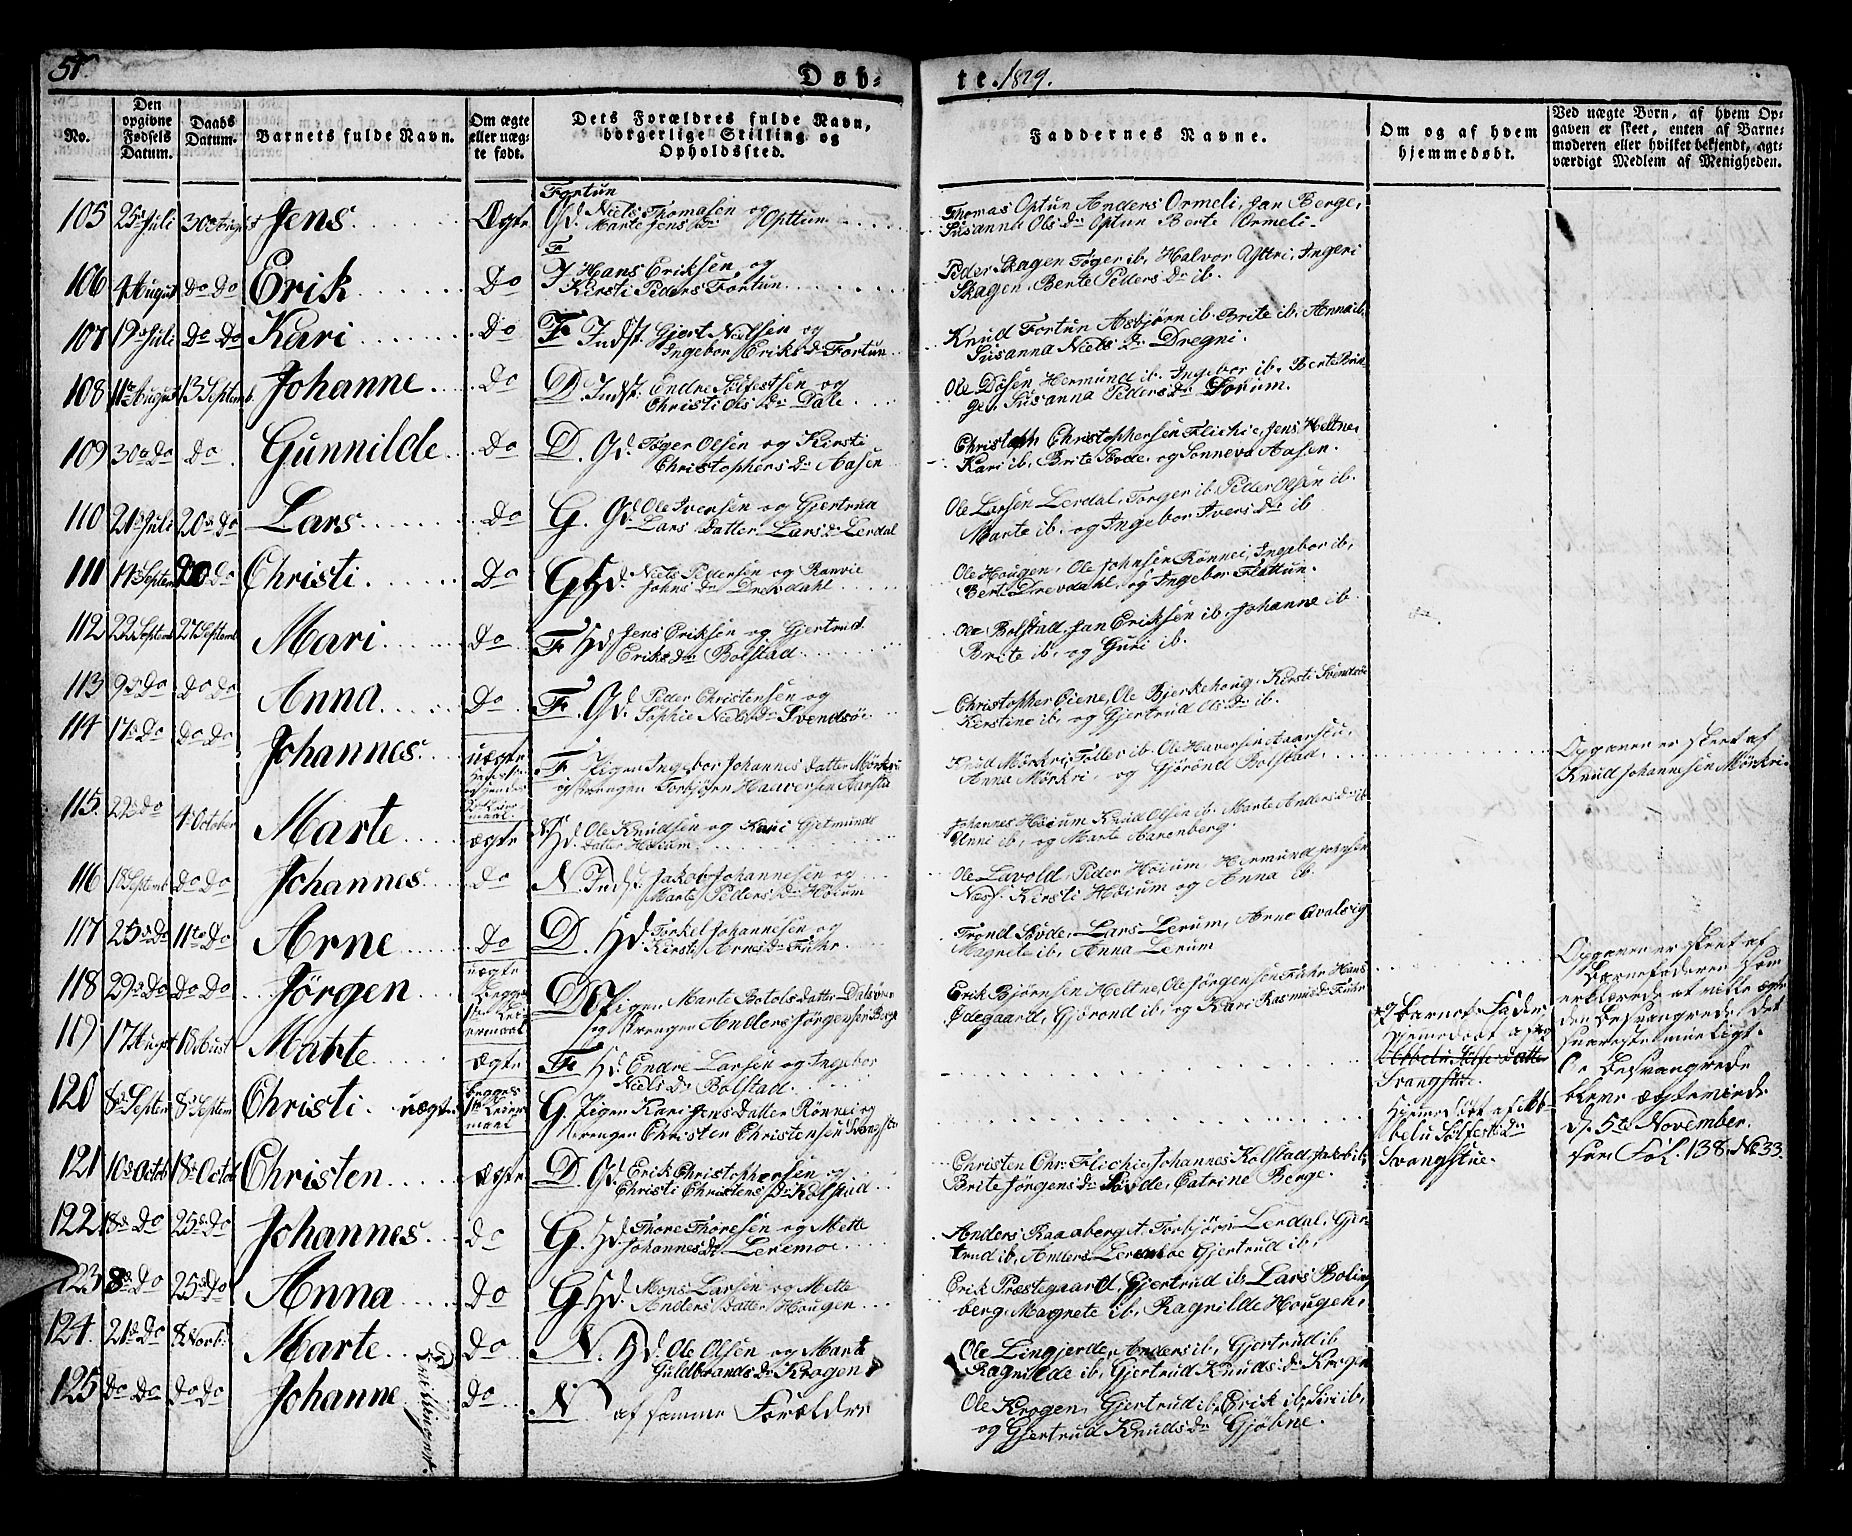 51.
Døb-
te. 1829.
No.
Den opgivne Fødsels Datum.
Daabs Datum.
Barnets fulde Navn.
Om ægte eller uægte født.
Dets Forældres fulde Navn, borgerlige Stilling og Opholdssted.
Faddernes Navne.
Om og af hvem hjemmedøbt.
Ved uægte Born, af hvem Opgaven er skeet, enten af Barnemoderen eller hvilket bekjendt, agtværdigt Medlem af Menigheden.
Fortun
105 25d Juli 30 August Jens Ægte Gd. Niels Thomasen og
Marte Jens Dr Opttun
Thomas Optun Anders Ormeli, Jan Berge,
Susanna Ols Dr Optun Berte Ormeli.
106 4 August Do Do Erik Do F Hans Eriksen og
Kirsti Peders Fortun
Peder Skagen Tøger ib. Halvor Yttri, Ingeri
Skagen, Berte Peders Dr ib.
107 19d Juli Do Do Kari Do F Indst. Gjert Nielsen og
Ingebor Eriks Dr Fortun
Knud Fortun Asbjørn ib. Brite ib, Anna ib,
Susanna Niels Dr Dregni.
108 11te August 13 Septemb. Johanne Do D Indst. Endre Sølfestsen og
Christi Ols Dr Dale
Ole Døsen Hermund ib. Ingebor ib. Berte Brin
ge, Susanna Peders Dr Sorum.
109 30d Do Do Gunnilde Do D. Gd. Tøger Olsen og Kirsti
Christophers Dr Aasen
Christoph Christophersen Flichie, Jens Heltne
Kari ib, Brite Søde, og Sonneva Aasen.
110 21d Juli 20d Do Lars Do G. Gd. Ole Iversen og Gjertrud
Lars Datter Lars Dr Lerdal
Ole Larsen Lerdal, Torger ib Peder Olsen ib.
Marte ib. og Ingebor Ivers Dr ib
111 14 Septem 20 Do Christi Do G Hd. Niels Pedersen og Ranvie
Johns Dr Drevdahl
Ole Hougen, Ole Johnsen Rønnei, Ingebor ib,
Berte Drevdahl, og Ingebor Flattun.
112 22 Septemb 27 Septemb Mari Do F Hd Jens Eriksen og Gjertrud
Eriks Dr Bolstad
Ole Bolstad, Jan Eriksen ib. Johanne ib.
Brite ib, og Guri ib.
113 9d Do Do Do Anna Do F. Gd. Peder Christensen og
Sophie Niels Dr Svendsøe
Christopher Eiene, Ole Bjerkehoug, Kirsti Svendsøe
Kerstene ib, og Gjertrud Ols Dr ib.
114 17d Do Do Do Johannes uægte
F Pigen Ingebor Johannes Datter Mørkri
og Drengen Torbjørn Haaversen Aarstad
Knud Mørkri, Toller ib. Ole Haversen Aaarstu,
Anna Mørkri, og Gjørond Bolstad
Opgaven er skeet af
Knud Johannesen Mørkri.
115. 22d Do 4 October Marte ægte Hd. Ole Knudsen og Kari Gjetmunds
Datter Høium
Johannes Høium Knud Olsen ib. Marte Anders Dr ib
Unni ib, og Marte Aarenberg.
116 18 Septemb Do Do Johannes Do N. Indst. Jakob Johannesen og
Marte Peders Dr Høium
Ole Lavold, Peder Høium, Hermund Johnsen
Næs, Kirsti Høium og Anna ib.
117 25d Do 11te Do Arne Do D. Hd. Torkel Johannesen og
Kirsti Arns Dr Fuhr
Trond Søvde, Lars Lerum, Arne Qvalsvig
Magrete ib, Anna Lerum
118 29d Do Do Do Jørgen uægte
begges
1ste Lei
ermaal
D Pigen Marte Botols Datter Dalsøren
og Drengen Anders Jørgensen Berge
Erik Bjørnsen Heltne, Ole Jørgensen Fuhr Hans
Ødegaard, Gjørond ib, og Kari Rasmus Dr Fuhr
Opgaven er skeet af
Barnefaderen som
erklærede at ville ægte
den besvangrede, det
snareste mueligt.
De besvangrede
bleve ægteviede
d. 5te November.
see Fol. 138, No 33.
119 17 August 18 August Marte ægte F Hd. Endre Larsen og Ingebor
Niels Dr Bolstad
af Barnets Fader
hjemmedøbt
120 8d Septem 8d Septem Christi uægte
begges
1ste Leier
maal
G. Pigen Kari Jens Datter Rønnei og
Drengen Christen Christensen Svangstu
Hjemmedøbt af Ib-
belu Sølfests Dr
Svangstue.
121 10d Octob 18d Octob Christen ægte D. Gd. Erik Christophersen og
Christi Christens Dr Kolstad
Christen Chr. Flichie, Johannes Kolstad Jakob ib,
Brite Jørgens Dr Søvde, Catrine Berge.
122 18d Do 25d Do Johannes Do G. Hd. Thore Thoresen og Mette
Johannes Dr Leremoe
Anders Raaaberget, Torbjørn Lerdal, Gjer
trud ib, Anders Leremoe Gjertrud ib,
123 8d Do 25d Do Anna Do G Hd. Mons Larsen og Mette
Anders Datter Hougen
Erik Præstegaard, Gjertrud ib. Lars Boling
berg, Magnete ib, Ragnilde Hougen,
124. 21d Do 8 Novb. Marte Do N. Hd. Ole Olsen og Marte
Guldbrands Dr Krogen
Ole Lingjerde, Anders ib, Gjertrud ib
Ragnilde ib, Gjertrud Knuds Dr Krogen
125 Do Do Do Do Johanne Tvillinger. Do N af samme Forældre
Ole Krogen, Gjertrud ib, Erik ib, Siri ib,
og Gjertrud Knuds Dr Gjøbne.